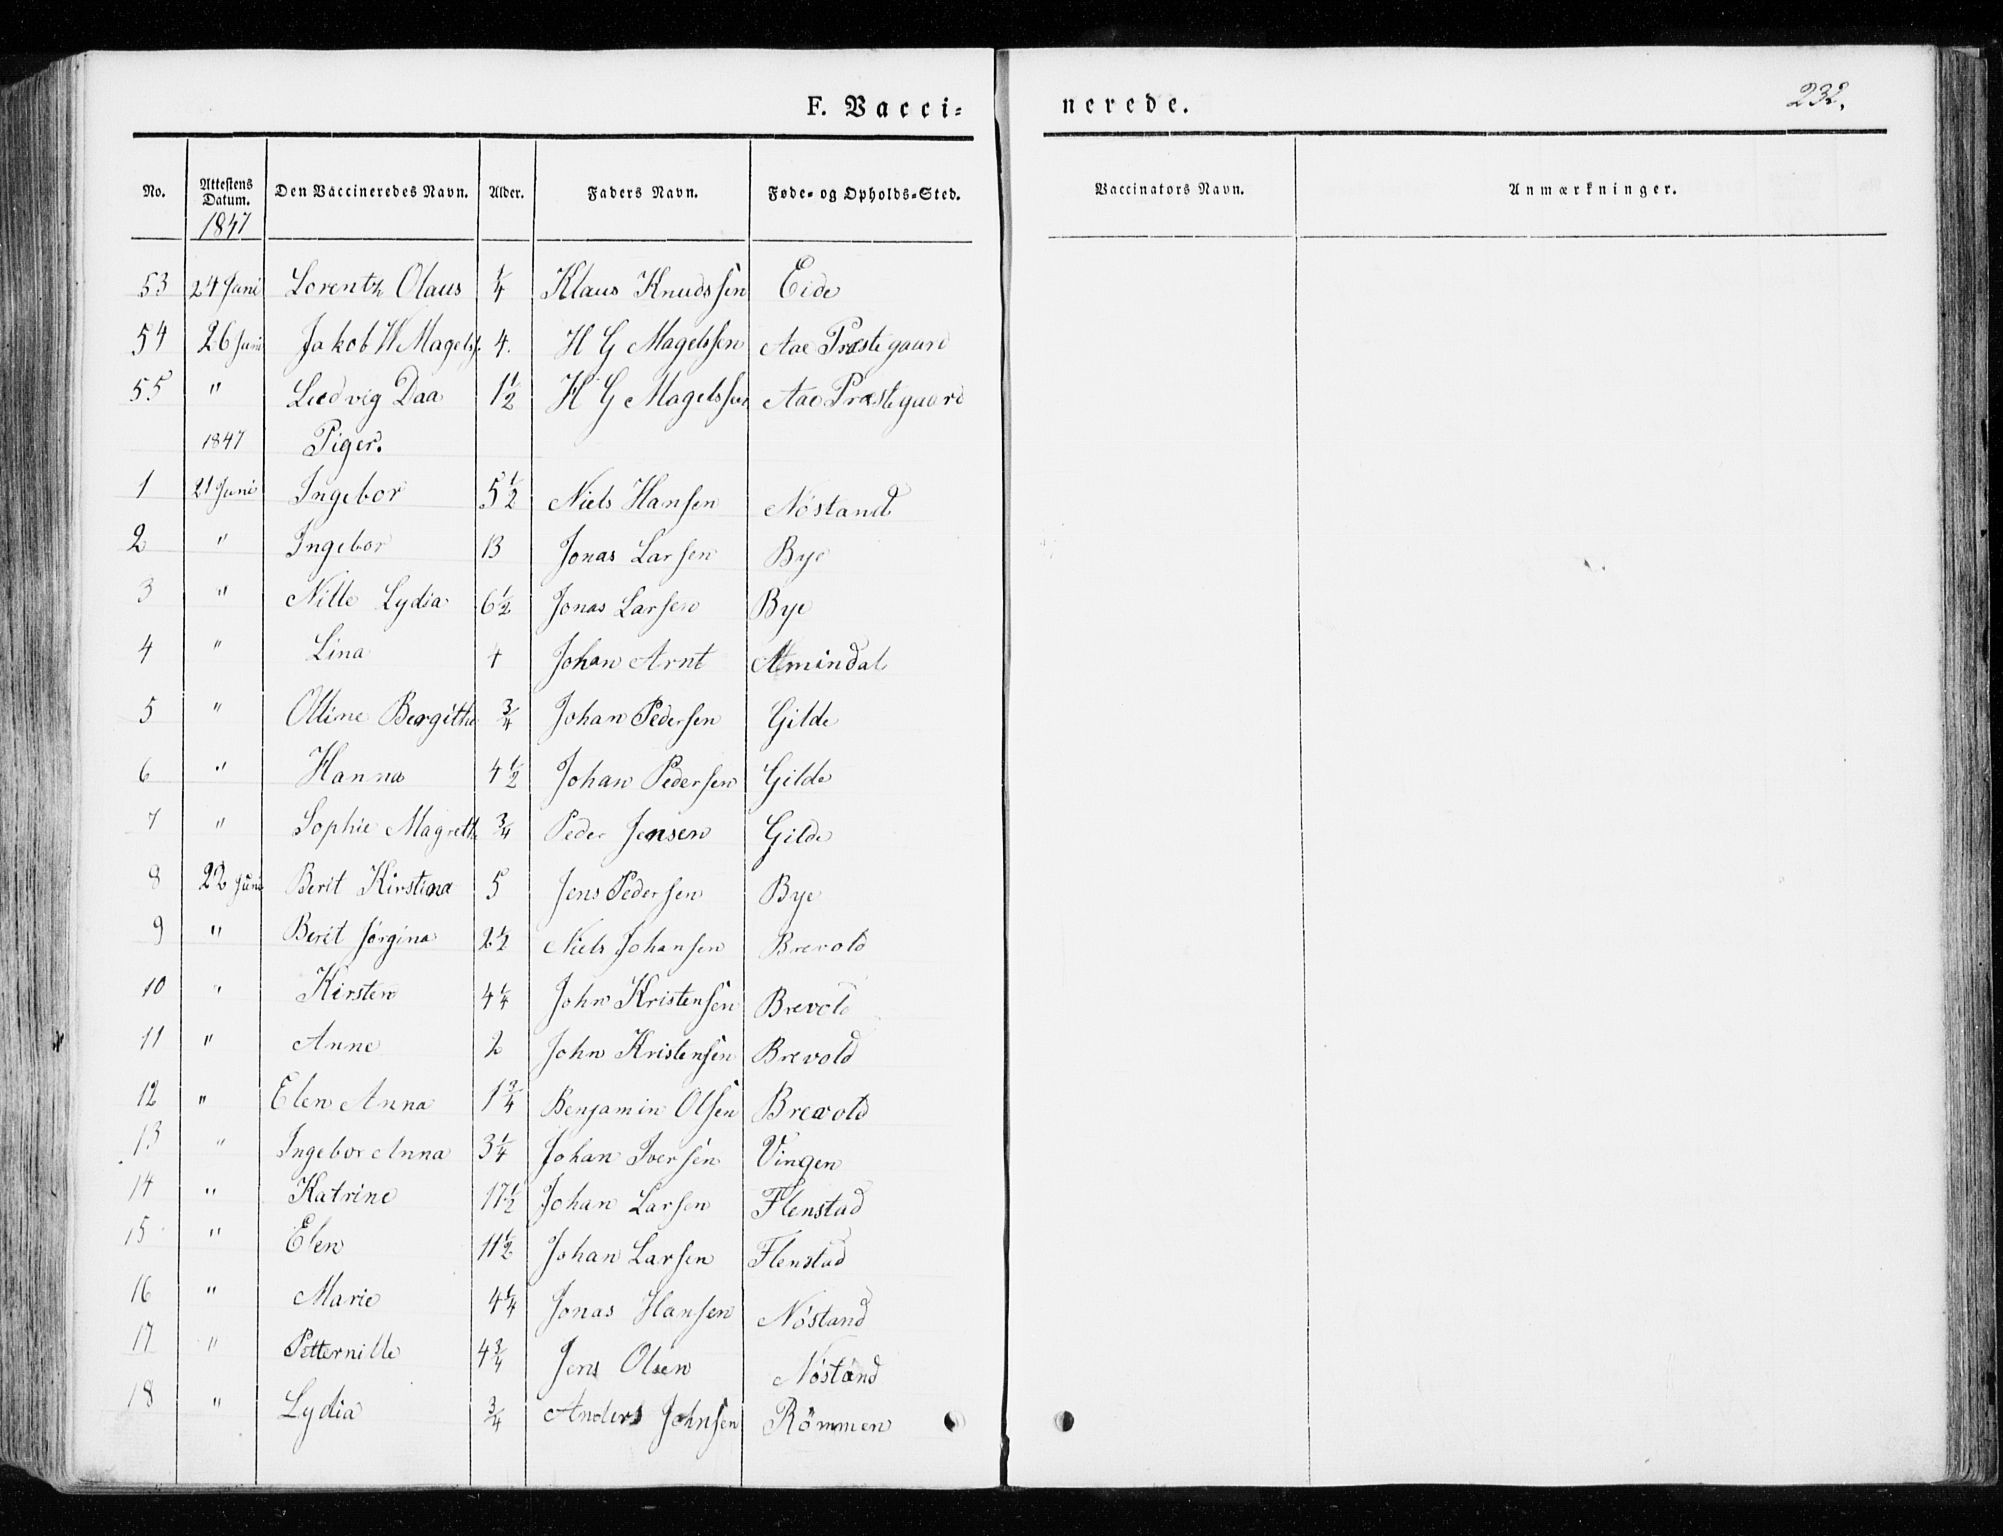 F. Vacci=
nerede.
232.
No. Attestens Datum. Den Vaccineredes Navn. Alder. Faders Navn. Føde= og Opholds=Sted. Vaccinators Navn. Anmærkninger.
1847
53 24 Juni Lorentz Olaus ¼ Klaus Knudssen Eide
54 26 Juni Jakob W Magelss. 4. H G Magelssen Aae Præstegaard
55 " Ludvig Daa 1½ H G Magelssen Aae Præstegaard
1847 Piger.
1 21 Juni Ingebor 5½ Niels Hansen Nöstand
2 " Ingebor 13 Jonas Larsen Bye
3 " Nille Lydia 6½ Jonas Larsen Bye
4 " Lina 4 Johan Arnt Almindal
5 " Olline Bergithe ¾ Johan Pedersen Gilde
6 " Hanna 4½ Johan Pedersen Gilde
7 " Sophie Magrethe ¾ Peder Jensen Gilde
8 22 Juni Berit Kirstina 5 Jens Pedersen Bye
9 " Berit Jörgina 2½ Niels Johansen Brevold
10 " Kirsten 4¼ John Kristensen Brevold
11 " Anne 2 John Kristensen Brevold
12 " Elen Anna 1¾ Benjamin Olsen Brevold
13 " Ingebor Anna 3¼ Johan Iversen Vingen
14 " Katrine 17½ Johan Larsen Flenstad
15 " Elen 11½ Johan Larsen Flenstad
16 " Marie 4¼ Jonas Hansen Nöstand
17 " Petternille 4¾ Jens Olsen Nöstand
18 " Lydia ¾ Anders Johnsen Römmen